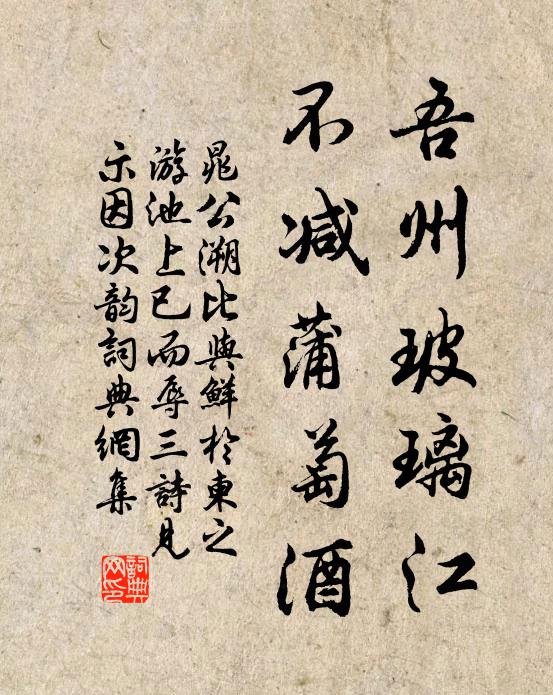 吾州玻璃江
不减蒲萄酒
晁公溯比與鮮於東之
游池上已而辱三詩見
示因次韵詞典網集
詞典
网印